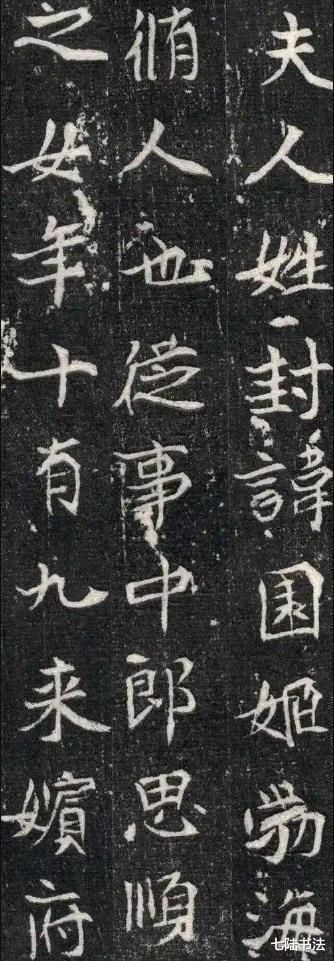 夫人姓封諱姬勃海
脩人也從事中郎思順
之女年十有九来嬪府
七陆书法